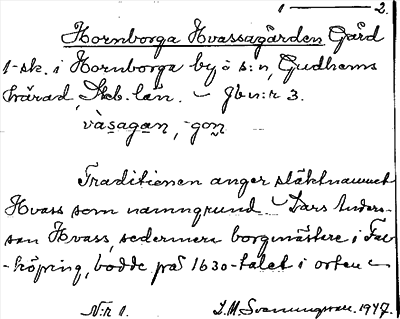 1 — 2.
Hornborga Hvassagården Gård
1-sk. i Hornborga by o s:n, Gudhems
härad, Skb. län. – Jb n:r 3.
vàsagan, -gon
Traditionen anger släktnamnet
Hvass som namngrund – Lars Anders-
son Hvass, sedermera borgmästare i Fal-
-köping, bodde på 1630-talet i orten –
N:r 1. I.M. Svenningsson. 1947.